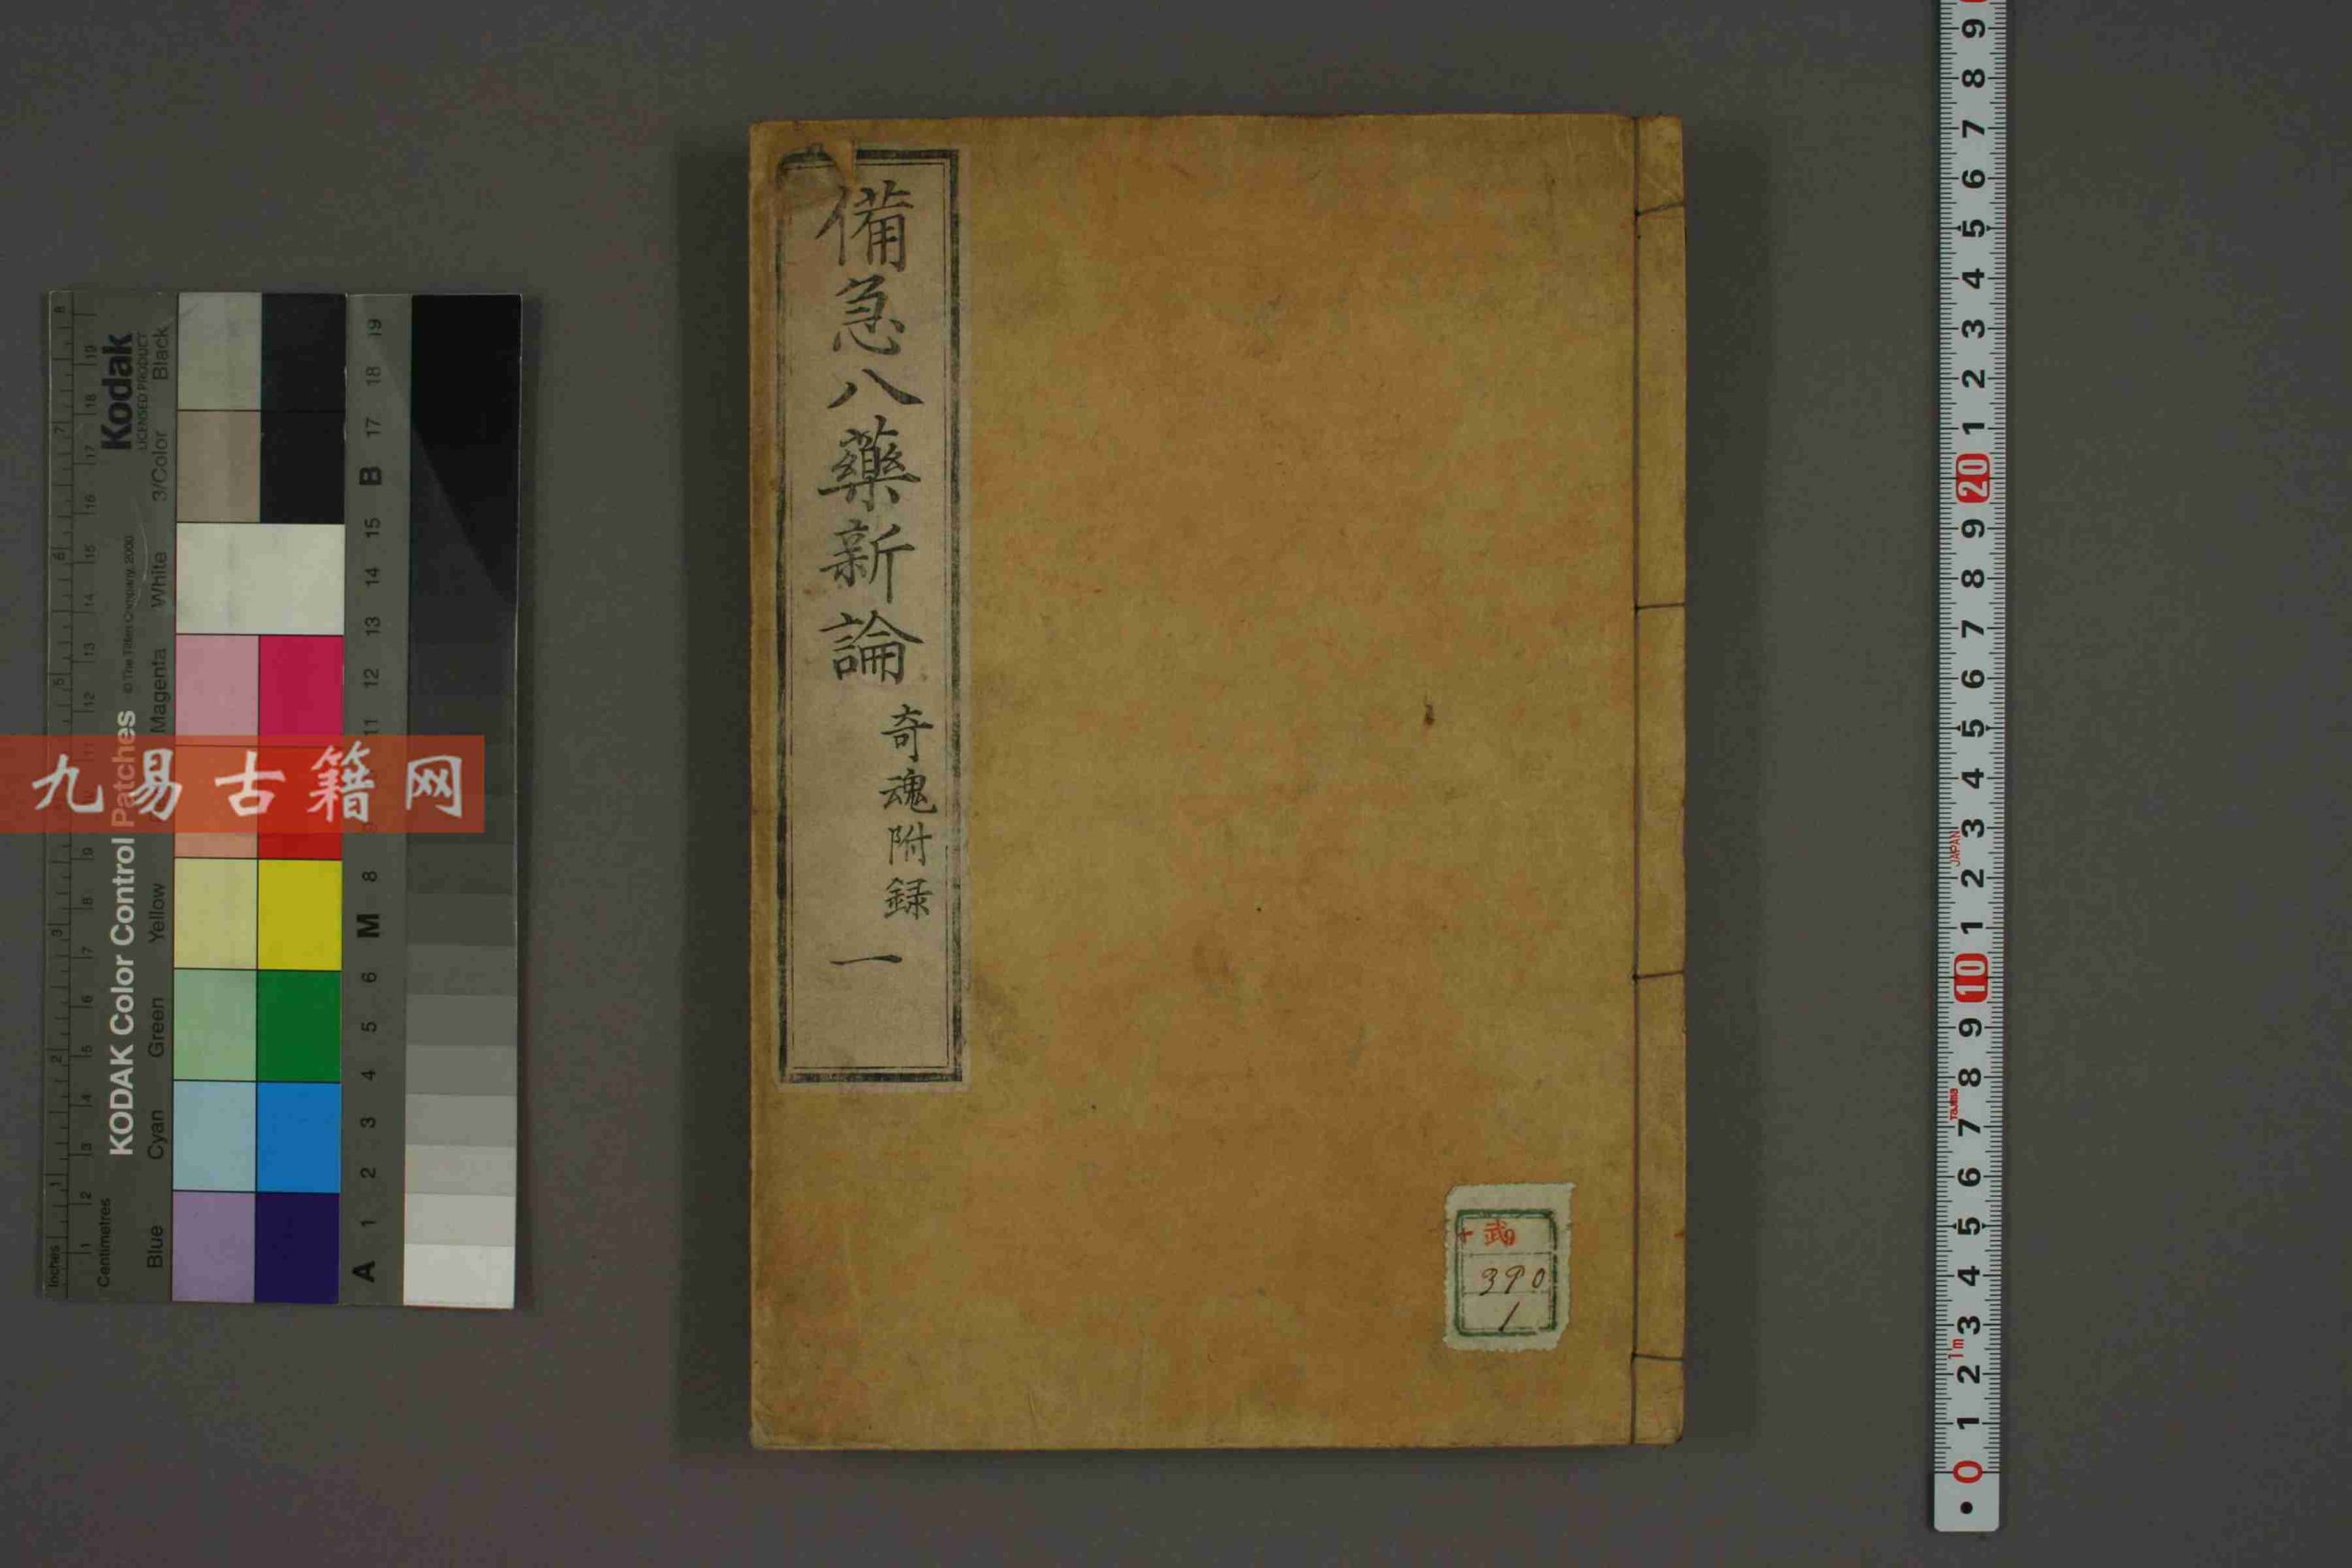 備急八藥新論
奇魂附録
一
武
390
1
九易古籍网
Kodak
LICENSED PRODUCT
KODAK Color Control Patches
© The Tiffen Company, 2000
Black
3/Color
White
Magenta
Yellow
Green
Cyan
Blue
Inches
Centimetres
19
18
17
B
15
14
13
12
11
8
M
6
5
4
3
2
1
A
9
8
7
6
5
4
3
2
1
20
9
8
7
6
5
4
3
JAPAN
2
1
10
9
8
Tajima
7
6
5
4
3
1m
2
1
0